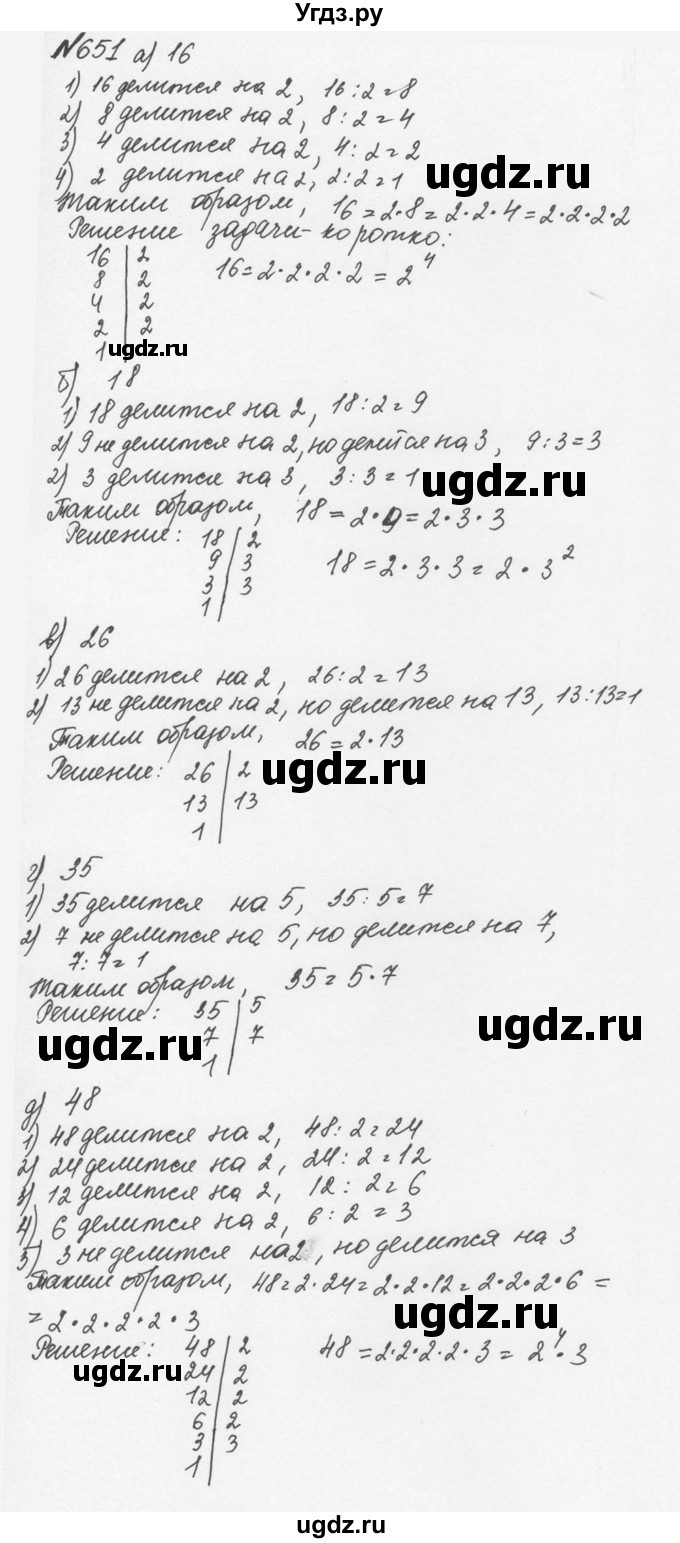 Угдз.ру
№651 а) 16
1) 16 делится на 2, 16:2=8
2) 8 делится на 2, 8:2=4
3) 4 делится на 2, 4:2=2
4) 2 делится на 2, 2:2=1
ugdz.ru
Таким образом, 16=2·8=2·2·4=2·2·2·2
Решение задачи-коротко:
16 | 2 16=2·2·2·2=2⁴
8 | 2
4 | 2
2 | 2
1 |
ugdz.ru
б) 18
1) 18 делится на 2, 18:2=9
2) 9 не делится на 2, но делится на 3, 9:3=3
2) 3 делится на 3, 3:3=1
ugdz.ru
Таким образом, 18=2·9=2·3·3
Решение: 18 | 2
9 | 3 18=2·3·3=2·3²
3 | 3
1 |
в) 26
1) 26 делится на 2, 26:2=13
2) 13 не делится на 2, но делится на 13, 13:13=1
Таким образом, 26=2·13
Решение: 26 | 2
ugdz.ru
13 | 13
1 |
г) 35
1) 35 делится на 5, 35:5=7
2) 7 не делится на 5, но делится на 7,
7:7=1
Таким образом, 35=5·7
Решение: 35 | 5
ugdz.ru
7 | 7
ugdz.ru
1 |
д) 48
1) 48 делится на 2, 48:2=24
2) 24 делится на 2, 24:2=12
3) 12 делится на 2, 12:2=6
4) 6 делится на 2, 6:2=3
5) 3 не делится на 2, но делится на 3
Таким образом, 48=2·24=2·2·12=2·2·2·6=
=2·2·2·2·3
ugdz.ru
Решение: 48 | 2 48=2·2·2·2·3=2⁴·3
24 | 2
12 | 2
6 | 2
3 | 3
1 |
ugdz.ru
ugdz.ru